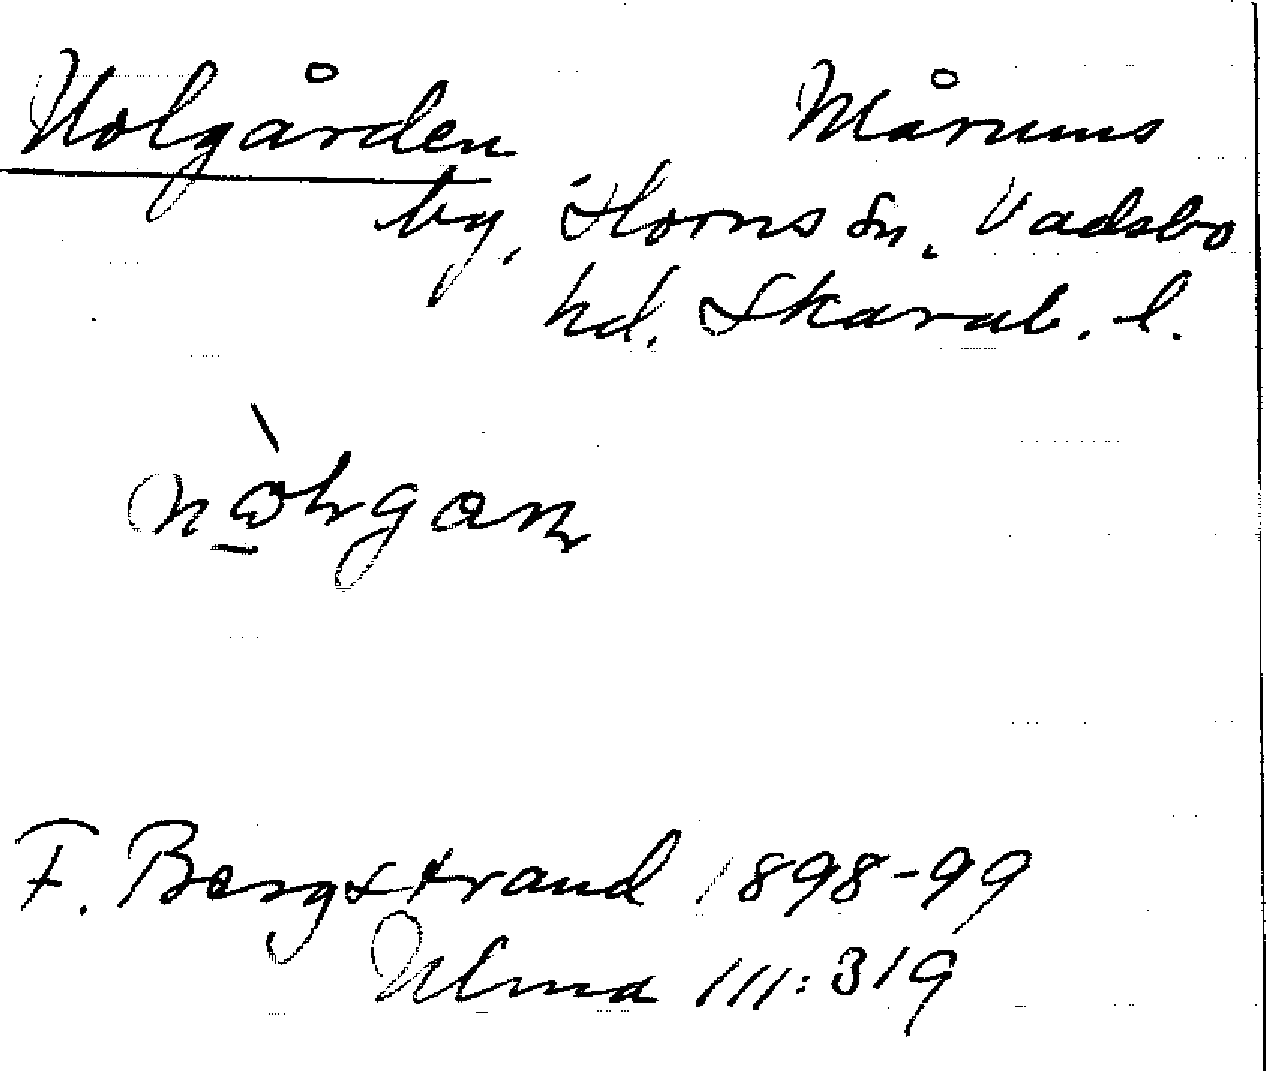 Nolgården Mårums
by, Horns sn. Vadsbo
hd. Skarab. l.
F. Bergstrand 1898-99
Ulma 111:319